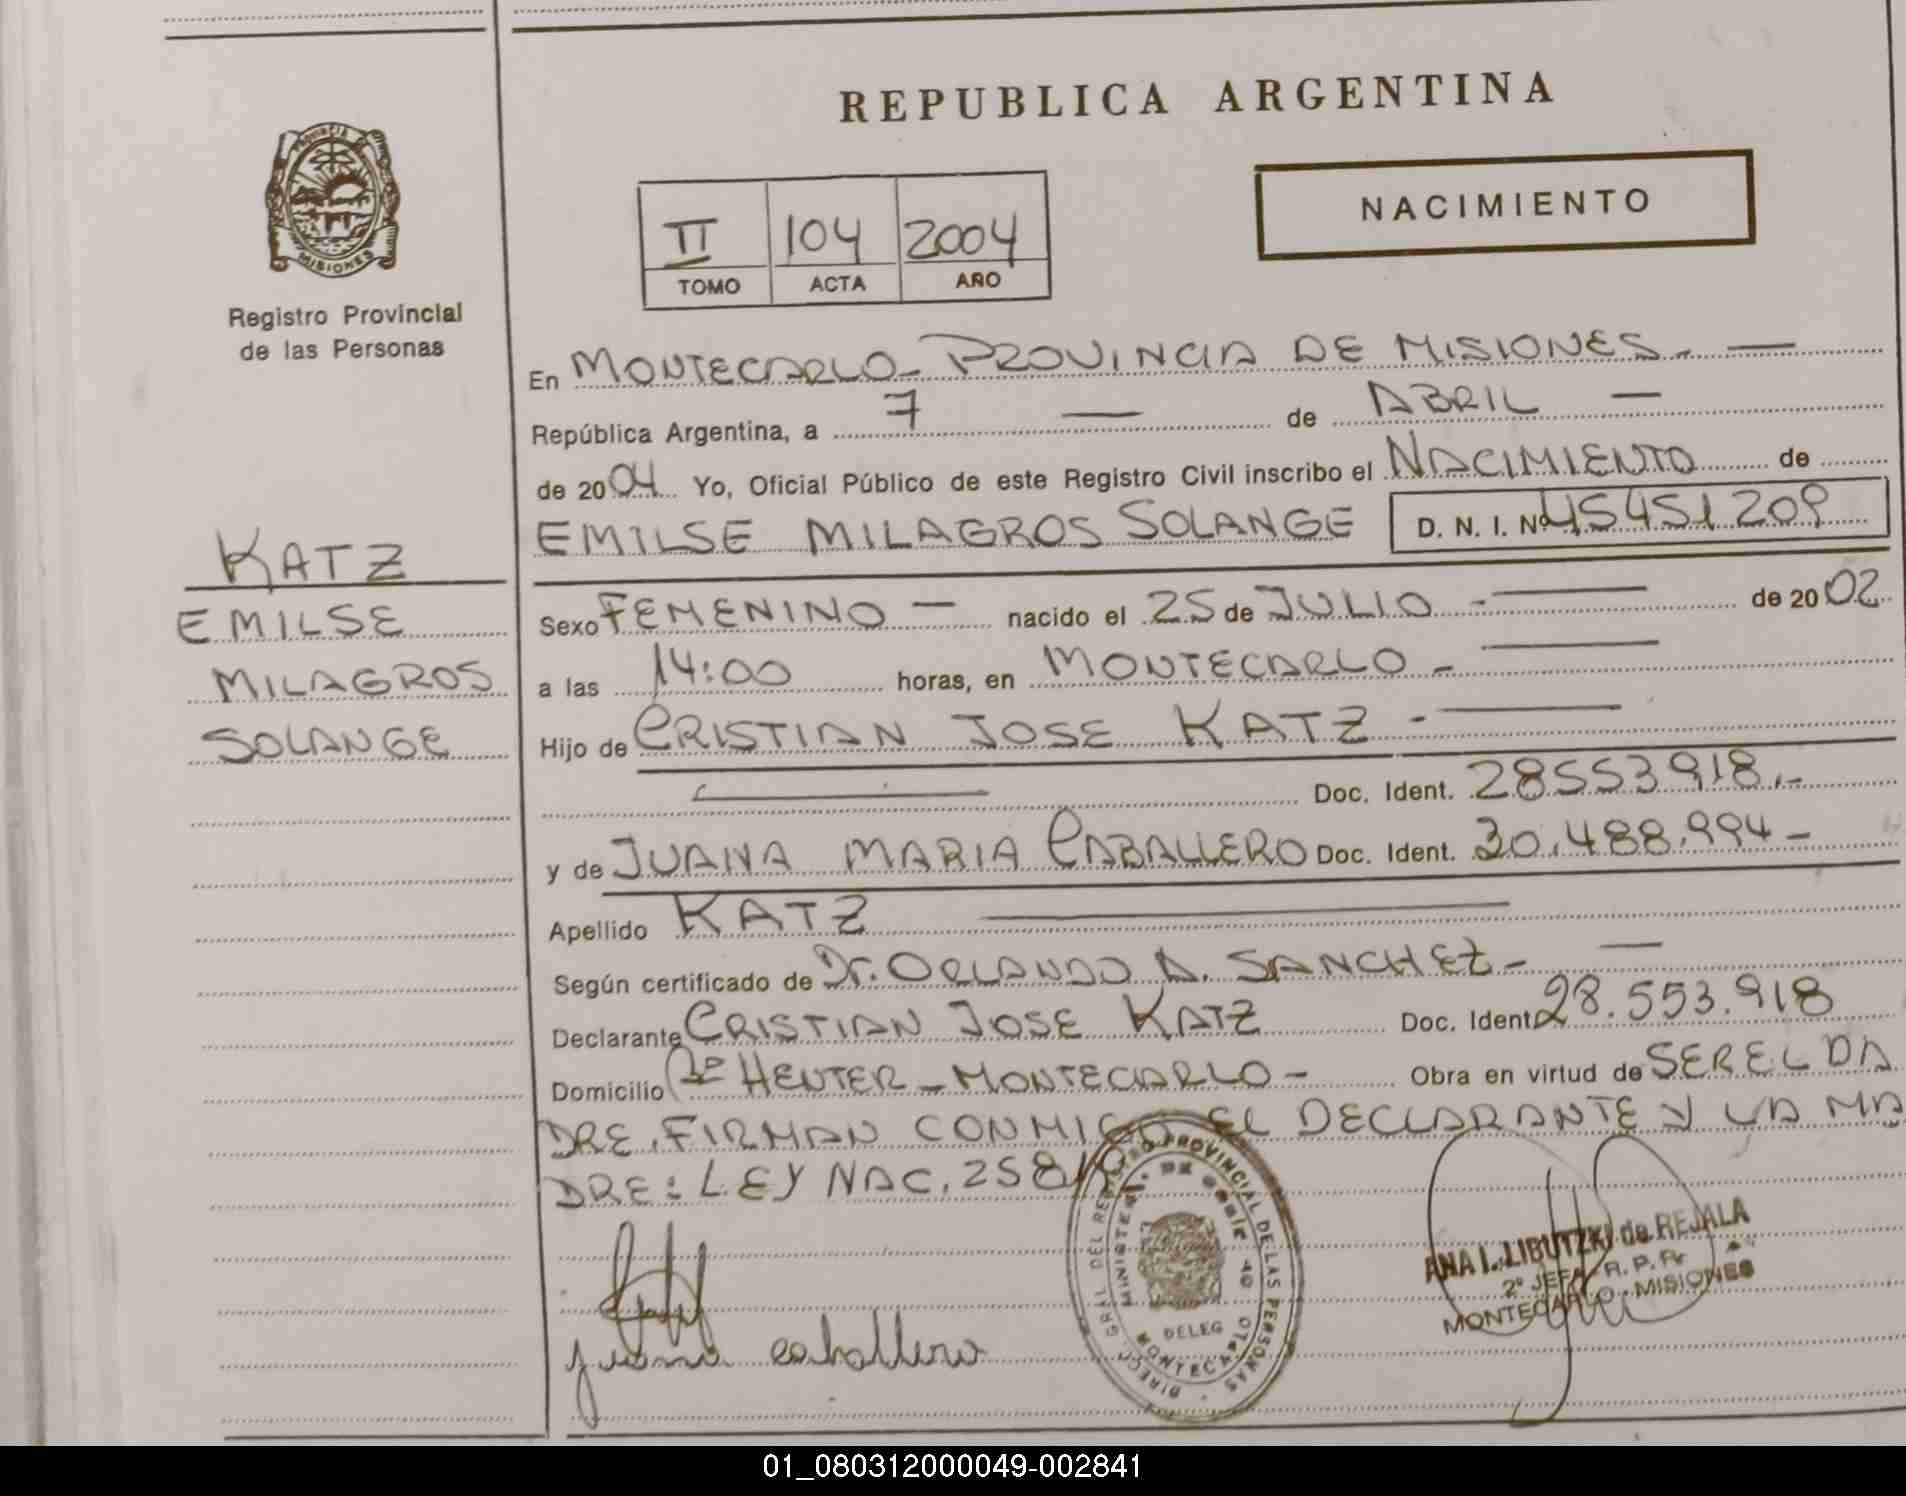 REPUBLICA ARGENTINA
PROVINCIA
MISIONES
Registro Provincial
de las Personas
II 104 2004
TOMO ACTA AÑO
NACIMIENTO
KATZ
EMILSE
MILAGROS
SOLANGE
En MONTECARLO - PROVINCIA DE MISIONES. —
República Argentina, a 7 — de ABRIL —
de 2004 Yo, Oficial Público de este Registro Civil inscribo el NACIMIENTO de
EMILSE MILAGROS SOLANGE D. N. I. Nº 45451209
Sexo FEMENINO — nacido el 25 de JULIO - — de 2002
a las 14:00 horas, en MONTECARLO - —
Hijo de CRISTIAN JOSE KATZ - —
Doc. Ident. 28553918.-
y de JUANA MARIA CABALLERO Doc. Ident. 30.488.994 -
Apellido KATZ —
Según certificado de Dr. ORLANDO A. SANCHEZ - —
Declarante CRISTIAN JOSE KATZ Doc. Ident. 28.553.918
Domicilio Bº HENTER - MONTECARLO - Obra en virtud de SER EL DA
DRE. FIRMAN CONMIGO EL DECLARANTE Y LA MA
DRE: LEY NAC. 25819
DIRECC. GRAL. DEL REGISTRO PROVINCIAL DE LAS PERSONAS
DELEG
MONTECARLO
ANA I. LIBUTZKI de REJALA
2º JEFA - R. P. P.
MONTECARLO - MISIONES
juana caballero
01_080312000049-002841